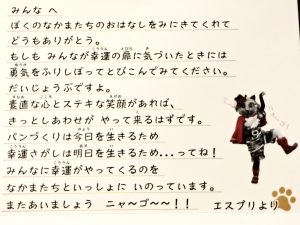 みんな へ
ぼくのなかまたちのおはなしをみにきてくれて
どうもありがとう。
もしも みんなが幸運の扉に気づいたときには
勇気をふりしぼってとびこんでみてください。
だいじょうぶですよ。
素直な心とステキな笑顔があれば、
きっとしあわせが やって来るはずです。
パンづくりは今日を生きるため
幸運さがしは明日を生きるため...ってね!
みんなに幸運がやってくるのを
なかまたちといっしょに いのっています。
またあいましょう ニャ〜ゴ〜〜!!
エスプリより